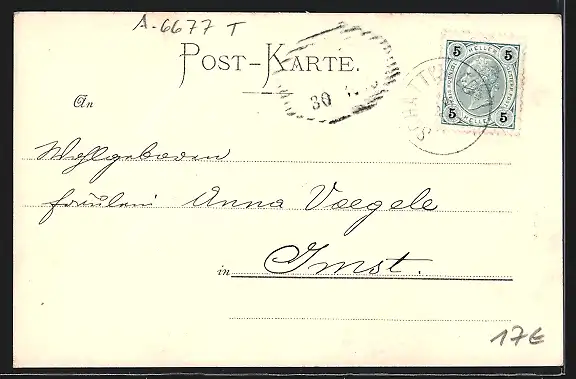 A-6677 T
POST-KARTE.
5 HELLER 5
5 HELLER 5
SCHATTW
30
An
Wohlgeboren
Fräulein Anna Vaegele
in Imst.
17€